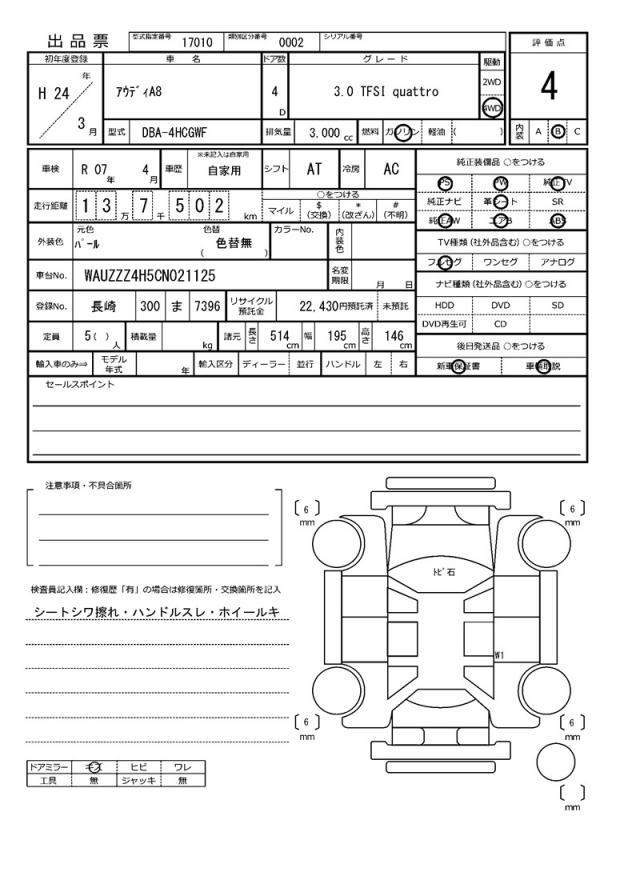 出品票 型式指定番号 17010 類別区分番号 0002 シリアル番号
初年度登録 車名 ドア数 グレード 駆動 評価点
H 24 年 3 月 アウディA8 4 D 3.0 TFSI quattro 2WD 4WD 4
型式 DBA-4HCGWF 排気量 3,000 cc 燃料 ガソリン 軽油 ( ) 内装 A B C
車検 R 07 年 4 月 車歴 ※未記入は自家用 自家用 シフト AT 冷房 AC 純正装備品 ○をつける
PS PW 純正TV
走行距離 1 3 万 7 千 5 0 2 km ○をつける
マイル $ (交換) * (改ざん) # (不明)
純正ナビ 革シート SR
純正AW エアB ABS
外装色 元色 パール 色替 ( 色替無 ) カラーNo. 内装色
TV種類 (社外品含む) ○をつける
フルセグ ワンセグ アナログ
車台No. WAUZZZ4H5CN021125 名変期限 月 日
ナビ種類 (社外品含む) ○をつける
登録No. 長崎 300 ま 7396 リサイクル預託金 22,430円預託済 未預託
HDD DVD SD
DVD再生可 CD
定員 5 ( ) 人 積載量 kg 諸元 長さ 514 cm 幅 195 cm 高さ 146 cm
後日発送品 ○をつける
輸入車のみ⇒ モデル年式 年 輸入区分 ディーラー 並行 ハンドル 左 右
新車保証書 車輌取説
セールスポイント
注意事項・不具合箇所
検査員記入欄：修復歴「有」の場合は修復箇所・交換箇所を記入
シートシワ擦れ・ハンドルスレ・ホイールキ
ドアミラー キズ ヒビ ワレ
工具 無 ジャッキ 無
6 mm
6 mm
トビ石
W1
6 mm
6 mm
mm